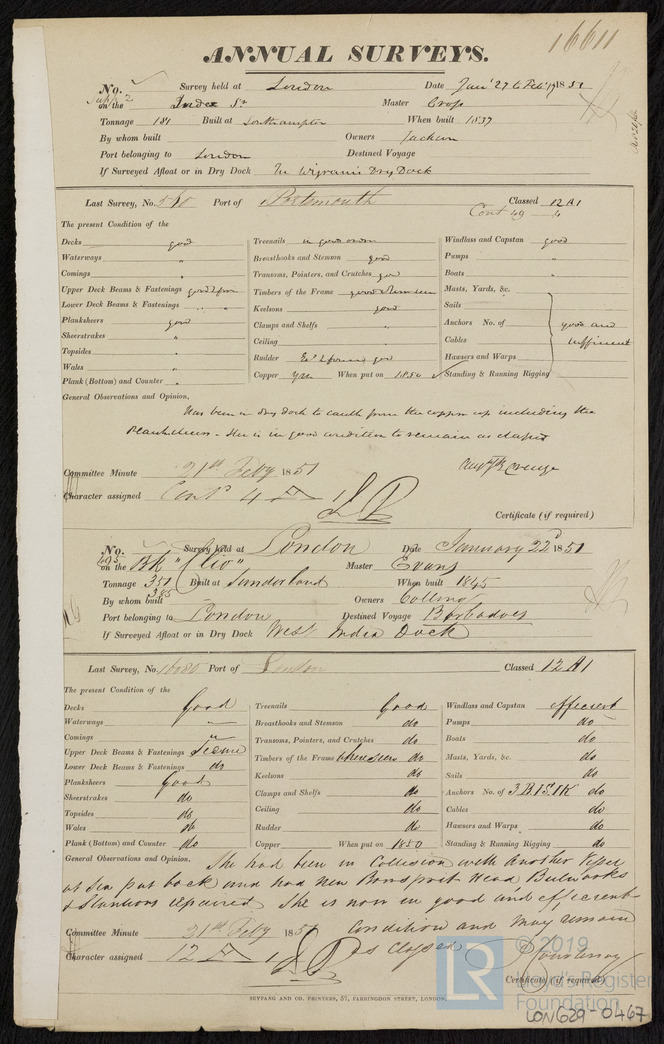 16611
ANNUAL SURVEYS.
No. Survey held at London Date Jany 27 to Feb 19 1851
on the Index Sr Master Crop
Tonnage 181 Built at Southampton When built 1837
By whom built Owners Jackson
Port belonging to London Destined Voyage
If Surveyed Afloat or in Dry Dock In Wigrams Dry Dock
Last Survey, No. 580 Port of Portsmouth Classed 12 A 1
Cont 49 4
The present Condition of the
Decks good Treenails in good order Windlass and Capstan good
Waterways " Breasthooks and Stemson good Pumps "
Comings " Transoms, Pointers, and Crutches good Boats "
Upper Deck Beams & Fastenings good Timbers of the Frame good where seen Masts, Yards, &c.
Lower Deck Beams & Fastenings " Keelsons good Sails
Planksheers good Clamps and Shelfs " Anchors No. of good and
Sheerstrakes " Ceiling " Cables sufficient
Topsides " Rudder Exd & found good Hawsers and Warps
Wales " Copper Y.M. When put on 1850 Standing & Running Rigging
Plank (Bottom) and Counter "
General Observations and Opinion,
Has been in dry dock to caulk from the copper up including the
Planksheers - She is in good condition to remain as classed
Committee Minute 21st Feby 1851
Character assigned Contd 4 A 1
Certificate (if required)
No. Survey held at London Date January 22d 1851
495 on the Bk "Clio" Master Evans
Tonnage 351 Built at Sunderland When built 1845
385
By whom built Owners Collins
Port belonging to London Destined Voyage Barbadoes
If Surveyed Afloat or in Dry Dock West India Dock
Last Survey, No. 16080 Port of London Classed 12 A 1
The present Condition of the
Decks Good Treenails Good Windlass and Capstan efficient
Waterways " Breasthooks and Stemson do Pumps do
Comings " Transoms, Pointers, and Crutches do Boats do
Upper Deck Beams & Fastenings Secure Timbers of the Frame where seen do Masts, Yards, &c. do
Lower Deck Beams & Fastenings do Keelsons do Sails do
Planksheers Good Clamps and Shelfs do Anchors No. of 3 B 1 S 1 K do
Sheerstrakes do Ceiling do Cables do
Topsides do Rudder do Hawsers and Warps do
Wales do Copper When put on 1850 Standing & Running Rigging do
Plank (Bottom) and Counter do
General Observations and Opinion. She had been in Collision with another Vessel
at Sea put back and had New Bowsprit Head Bulwarks
& Stantions repaired She is now in good and efficient
Committee Minute 21st Feby 1851 Condition and May remain
Character assigned 12 A 1 as classed
Certificate (if required)
SEYFANG AND CO. PRINTERS, 57, FARRINGDON STREET, LONDON.
© 2019
LR Lloyd's Register
Foundation
LON629-0467